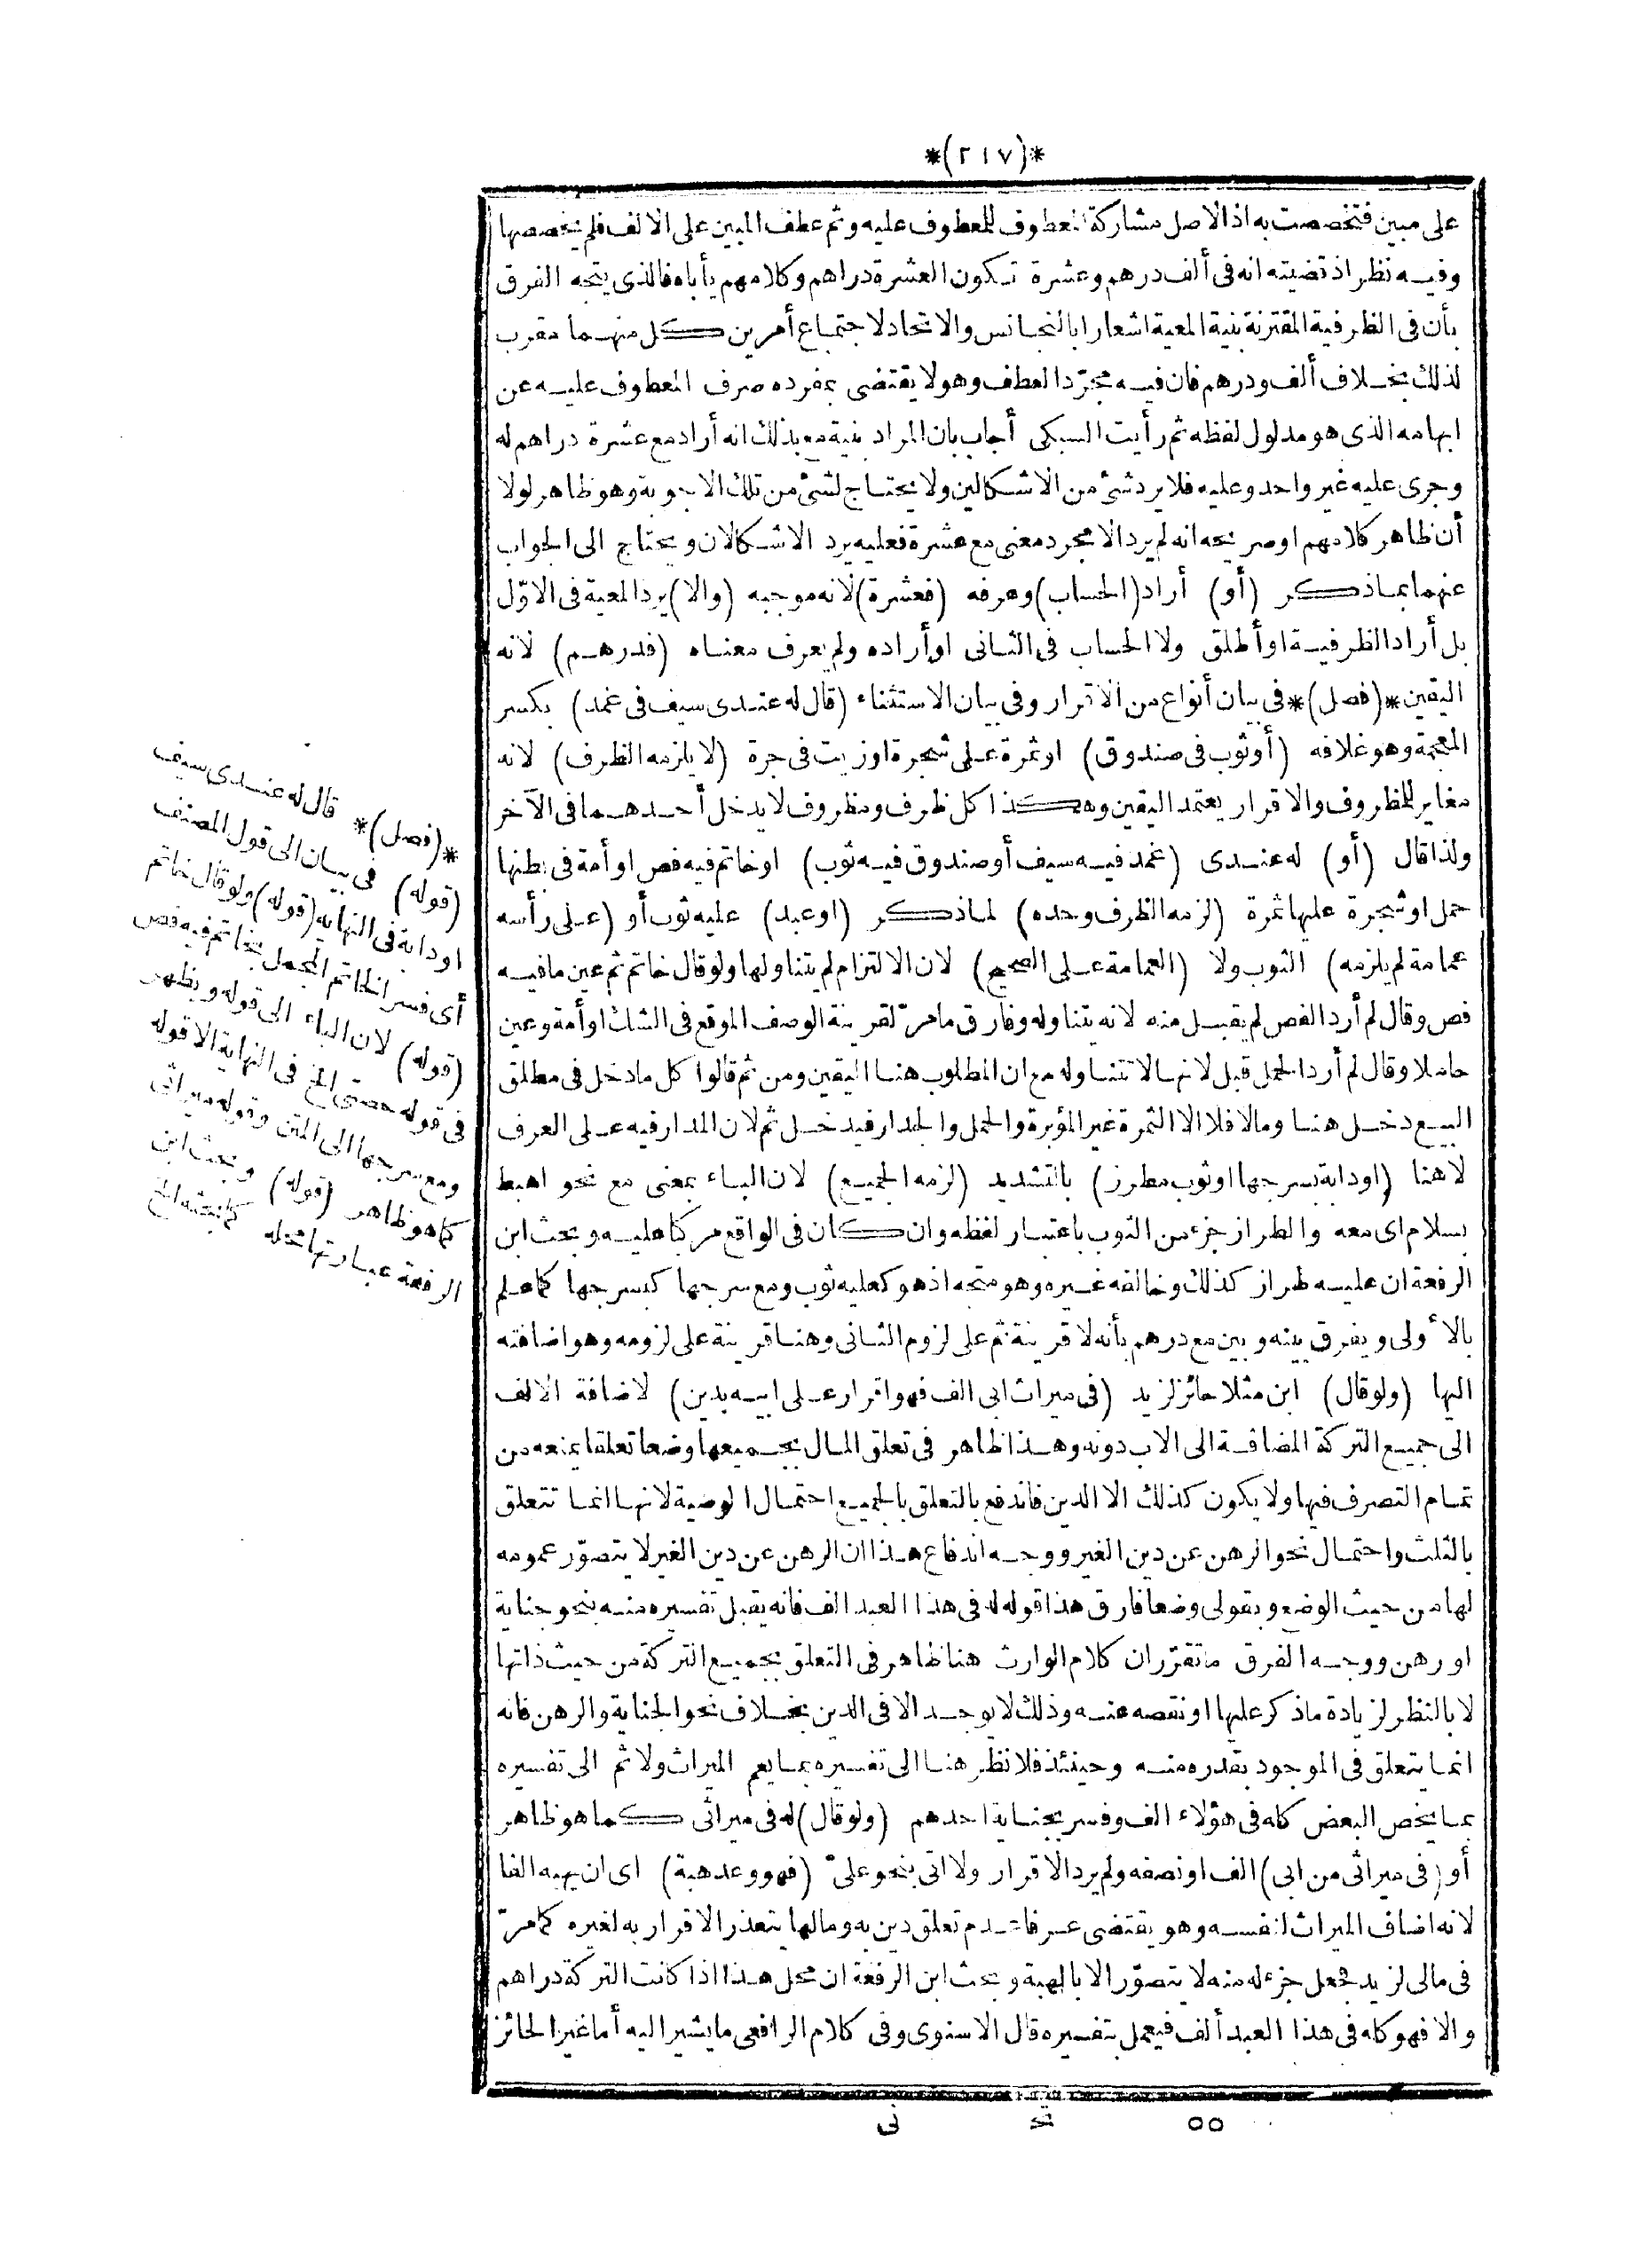 *(٢١٧)*
على مبين فتخصصت به اذ الاصل مشاركة المعطوف للمعطوف عليه وثم عطف المبين على الالف فلم يخصصها
وفيه نظر اذ قضيته انه فى ألف درهم وعشرة تكون العشرة دراهم وكلامهم يأباه فالذى يتجه الفرق
بأن فى الظرفية المقترنة بنية المعية اشعارا بالتجانس والاتحاد لاجتماع أمرين كل منهما مقرب
لذلك بخلاف ألف ودرهم فان فيه مجرّد العطف وهو لا يقتضى بمفرده صرف المعطوف عليه عن
ابهامه الذى هو مدلول لفظه ثم رأيت السبكى أجاب بان المراد بنية مع بذلك انه أراد مع عشرة دراهم له
وجرى عليه غير واحد وعليه فلا يرد شئ من الاشكالين ولا يحتاج لشئ من تلك الاجوبة وهو ظاهر لولا
أن ظاهر كلامهم او صريحه انه لم يرد الا مجرد معنى مع عشرة فعليه يرد الاشكالان ويحتاج الى الجواب
عنهما بما ذكر (أو) أراد (الحساب) وعرفه (فعشرة) لانه موجبه (والا) يرد المعية فى الاوّل
بل أراد الظرفية او أطلق ولا الحساب فى الثانى او أراده ولم يعرف معناه (فدرهم) لانه
اليقين *(فصل)* فى بيان أنواع من الاقرار وفى بيان الاستثناء (قال له عندى سيف فى غمد) بكسر
المعجمة وهو غلافه (أو ثوب فى صندوق) او ثمرة على شجرة او زيت فى جرة (لا يلزمه الظرف) لانه
مغاير للمظروف والاقرار يعتمد اليقين وهكذا كل ظرف ومظروف لا يدخل أحدهما فى الآخر
ولذا قال (أو) له عندى (غمد فيه سيف أو صندوق فيه ثوب) او خاتم فيه فص او أمة فى بطنها
حمل او شجرة عليها ثمرة (لزمه الظرف وحده) لما ذكر (او عبد) عليه ثوب أو (على رأسه
عمامة لم يلزمه) الثوب ولا (العمامة على الصحيح) لان الالتزام لم يتناولها ولو قال خاتم ثم عين ما فيه
فص وقال لم أرد الفص لم يقبل منه لانه يتناوله وفارق ما مرّ لقرينة الوصف الموقع فى الشك او أمة وعين
حاملا وقال لم أرد الحمل قبل لانها لا تتناوله مع ان المطلوب هنا اليقين ومن ثم قالوا كل ما دخل فى مطلق
البيع دخل هنا وما لا فلا الا الثمرة غير المؤبرة والحمل والجدار فيدخل ثم لان المدار فيه على العرف
لا هنا (او دابة بسرجها او ثوب مطرز) بالتشديد (لزمه الجميع) لان الباء بمعنى مع نحو اهبط
بسلام اى معه والطراز جزء من الثوب باعتبار لفظه وان كان فى الواقع مركبا عليه وبحث ابن
الرفعة ان عليه طراز كذلك وخالفه غيره وهو متجه اذ هو كعليه ثوب ومع سرجها كبسرجها كما علم
بالأولى ويفرق بينه وبين مع درهم بأنه لا قرينة ثم على لزوم الثانى وهنا قرينة على لزومه وهو اضافته
اليها (ولو قال) ابن مثلا حائز لزيد (فى ميراث ابى الف فهو اقرار على ابيه بدين) لاضافة الالف
الى جميع التركة المضافة الى الاب دونه وهذا ظاهر فى تعلق المال بجميعها وضعا تعلقا يمنعه من
تمام التصرف فيها ولا يكون كذلك الا الدين فاندفع بالتعلق بالجميع احتمال الوصية لانها انما تتعلق
بالثلث واحتمال نحو الرهن عن دين الغير ووجه اندفاع هذا ان الرهن عن دين الغير لا يتصوّر عمومه
لها من حيث الوضع وبقولى وضعا فارق هذا قوله له فى هذا العبد الف فانه يقبل تفسيره منه بنحو جناية
او رهن ووجه الفرق ما تقرّر ان كلام الوارث هنا ظاهر فى التعلق بجميع التركة من حيث ذاتها
لا بالنظر لزيادة ما ذكر عليها او نقصه عنه وذلك لا يوجد الا فى الدين بخلاف نحو الجناية والرهن فانه
انما يتعلق فى الموجود بقدره منه وحينئذ فلا نظر هنا الى تفسيره بما يعم الميراث ولا ثم الى تفسيره
بما يخص البعض كله فى هؤلاء الف وفسر بجناية احدهم (ولو قال) له فى ميراثى كما هو ظاهر
أو (فى ميراثى من ابى) الف او نصفه ولم يرد الاقرار ولا اتى بنحو علىّ (فهو وعد هبة) اى ان يهبه الفا
لانه اضاف الميراث لنفسه وهو يقتضى عرفا عدم تعلق دين به وما لها يتعذر الاقرار به لغيره كما مرّ
فى مالى لزيد فجعل جزء له منه لا يتصوّر الا بالهبة وبحث ابن الرفعة ان محل هذا اذا كانت التركة دراهم
والا فهو كله فى هذا العبد ألف فيعمل بتفسيره قال الاسنوى وفى كلام الرافعى ما يشير اليه أما غير الحائز
*(فصل)* قال له عندى سيف
(قوله) فى بيان الى قول المصنف
او دابة فى النهاية (قوله) ولو قال خاتم
أى فسر الخاتم المجمل بخاتم فيه فص
(قوله) لان الباء الى قوله ويظهر
فى قوله حصتى الخ فى النهاية الا قوله
ومع سرجها الى المتن وقوله ميراثى
كما هو ظاهر (قوله) وبحث ابن
الرفعة عبارتها مثله كما بحثه الخ
٥٥ تح نى